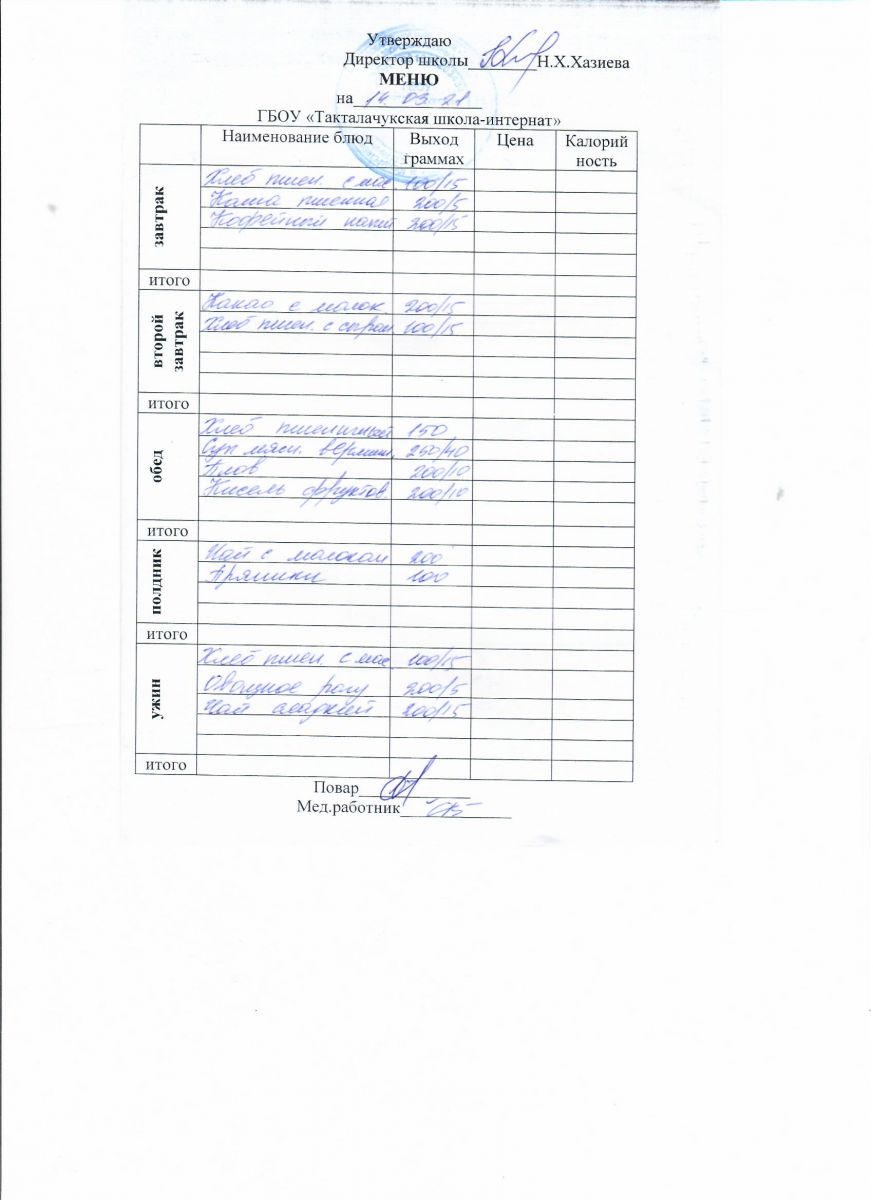 Утверждаю
Директор школы Н.Х.Хазиева
МЕНЮ
на 14. 03. 21
ГБОУ «Такталачукская школа-интернат»
Наименование блюд Выход граммах Цена Калорий ность
завтрак
Хлеб пшен. с мас 100/15
Каша пшенная 200/5
Кофейный напит 200/15
итого
второй завтрак
Какао с молок. 200/15
Хлеб пшен. с сыром 100/15
итого
обед
Хлеб пшеничный 150
Суп мясн. вермиш. 250/40
Плов 200/10
Кисель фруктов. 200/10
итого
полдник
Чай с молоком 200
Пряники 100
итого
ужин
Хлеб пшен. с мас 100/15
Овощное рагу 200/5
Чай сладкий 200/15
итого
Повар
Мед.работник